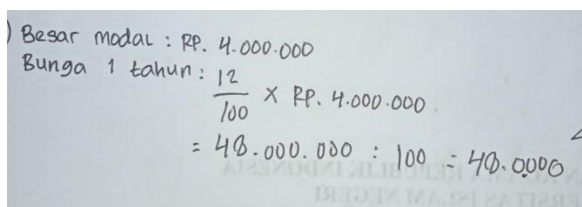 ) Besar modal : RP. 4.000.000
Bunga 1 tahun : 12/100 × RP. 4.000.000
= 48.000.000 : 100 = 48.0000